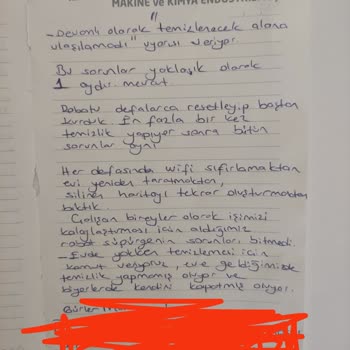 MAKİNE ve KİMYA ENDÜSTRİSİ
- Devamlı olarak temizlenecek alana
ulaşılamadı" uyarısı veriyor.
Bu sorunlar yaklaşık olarak
1 aydır mevcut.
Robotu defalarca resetleyip baştan
kurduk. En fazla bir kez
temizlik yapıyor sonra bütün
sorunlar aynı
Her defasında wifi sıfırlamaktan
evi yeniden taratmaktan,
silinen haritayı tekrar oluşturmaktan
bıktık.
Çalışan bireyler olarak işimizi
kolaylaştırması için aldığımız
robot süpürgenin sorunları bitmedi.
- Evde yokken temizlemesi için
komut veriyoruz, eve geldiğimizde
temizlik yapmamış oluyor ve
biyerlerde kendini kapatmış oluyor.